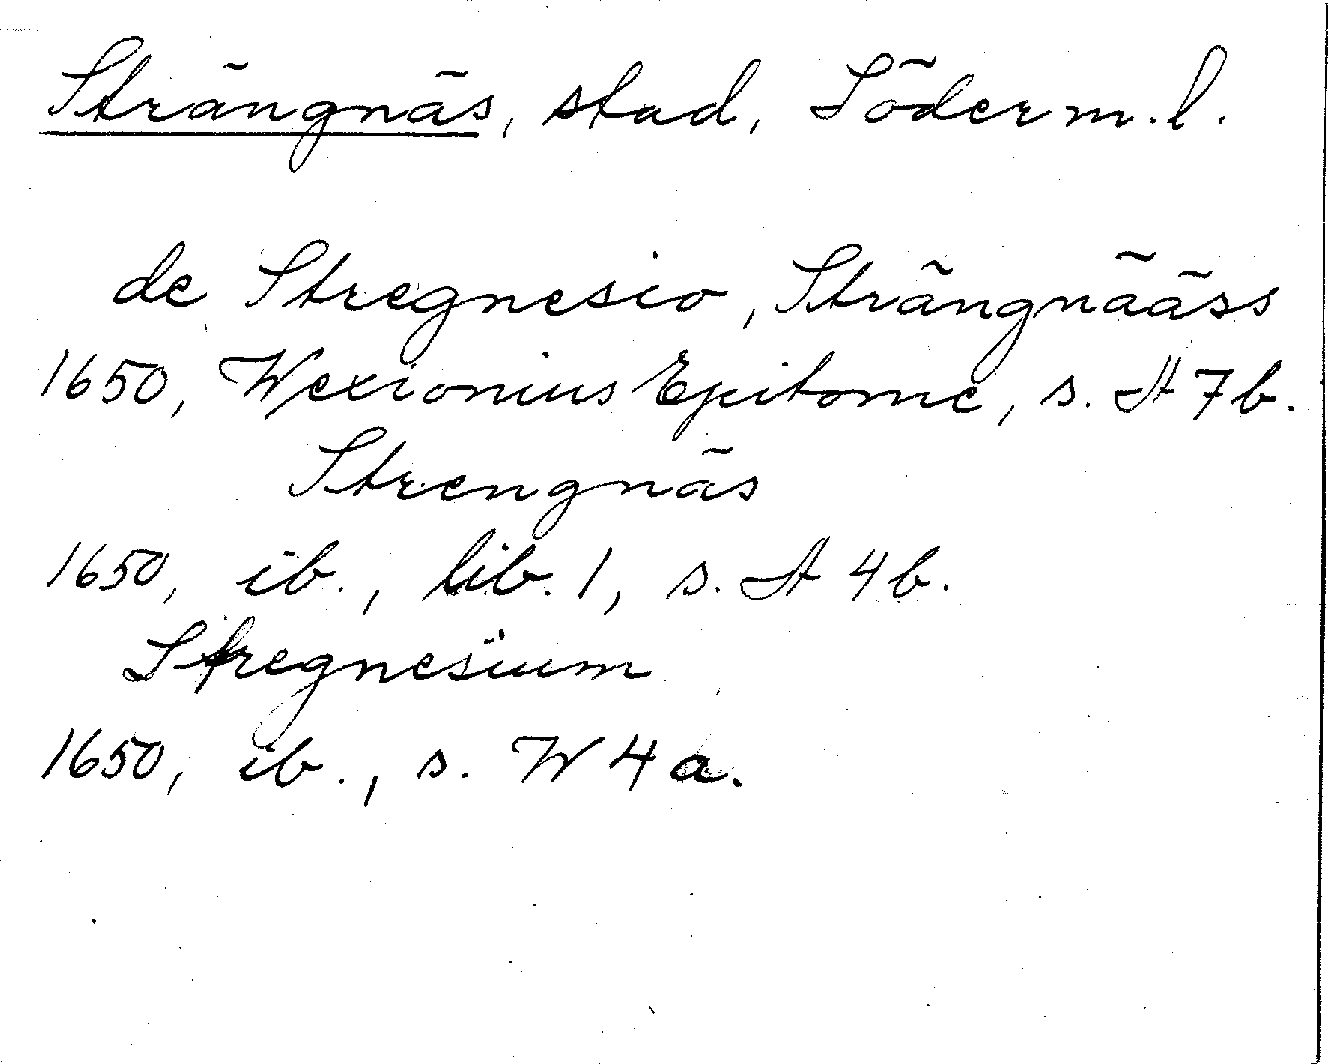 Strängnäs, stad, Söderm. l.
de Stregnesio, Strängnääss
1650, Wexionius Epitome, s. A 7 b.
Strengnäs
1650, ib., lib. 1, s. A 4 b.
Stregnesium
1650, ib., s. W 4 a.